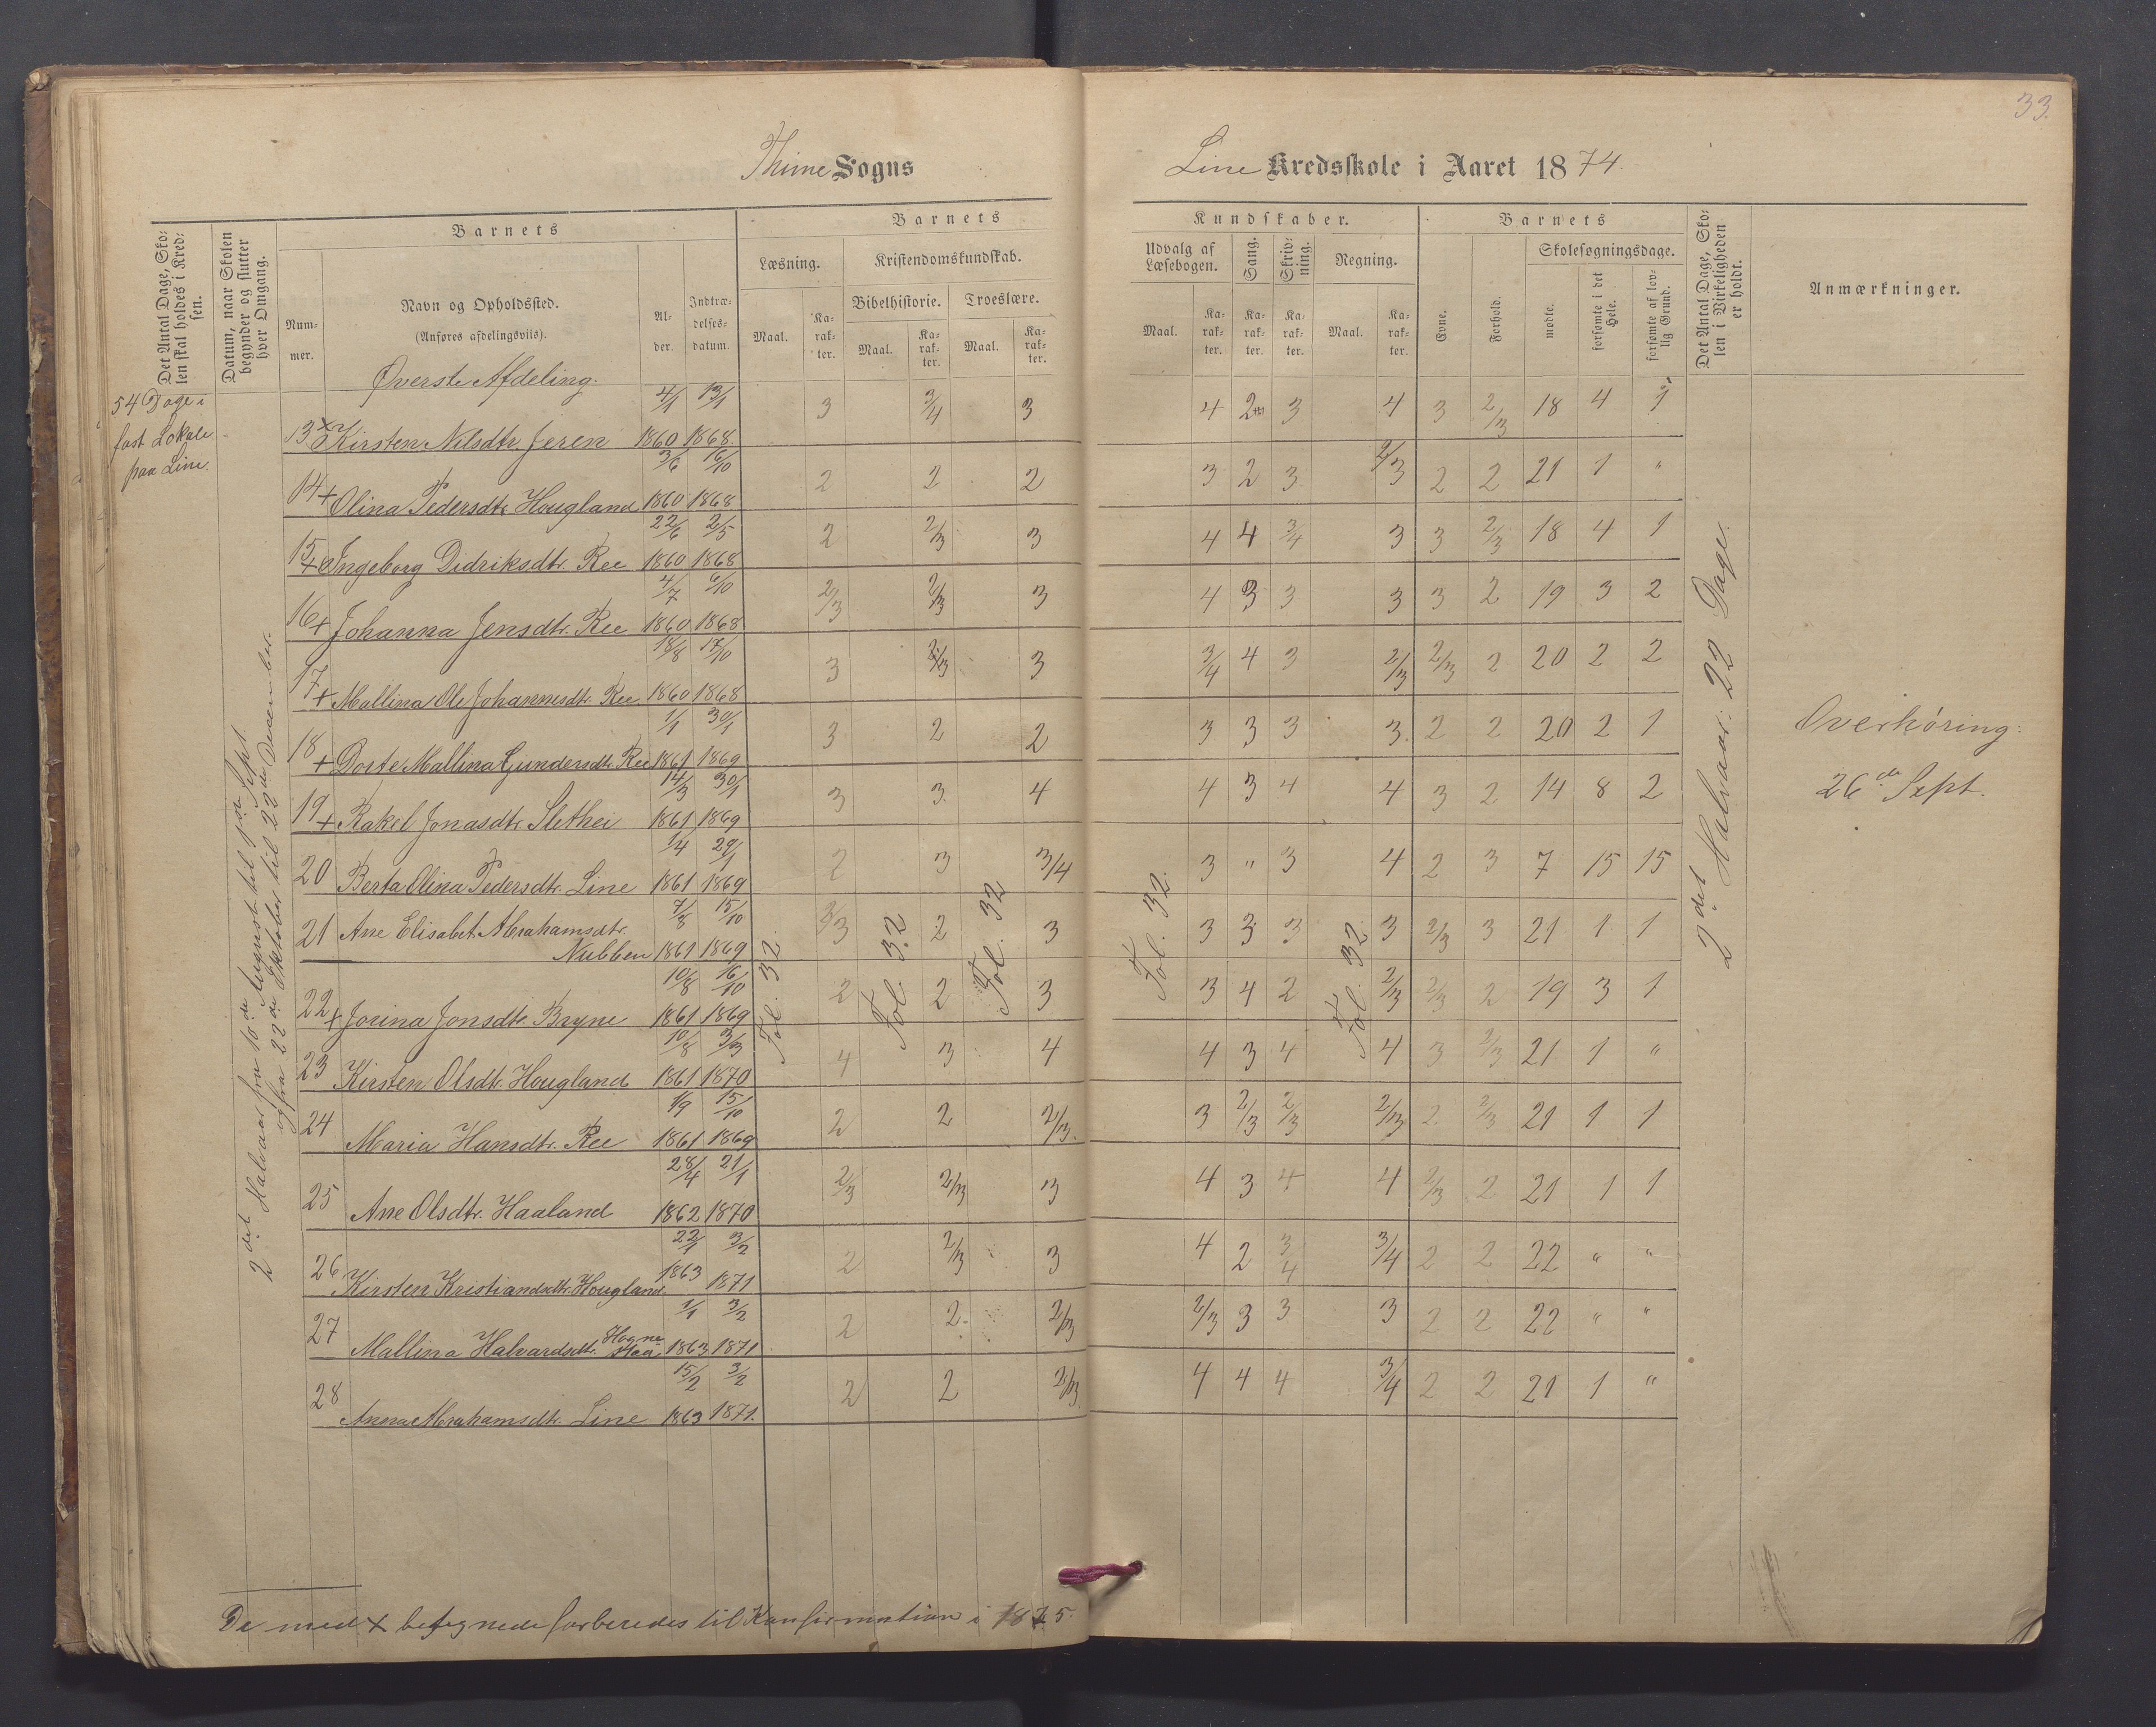 33.
Thime Sogns
Line Kredsskole i Aaret 1874.
Det Antal Dage, Sko-
len skal holdes i Kred-
sen.
Datum, naar Skolen
begynder og slutter
hver Omgang.
Barnets
Num-
mer.
Navn og Opholdssted.
(Anføres afdelingsviis).
Al-
der.
Indtræ-
delses-
datum.
Barnets
Læsning.
Maal.
Ka-
rak-
ter.
Kristendomskundskab.
Bibelhistorie.
Troeslære.
Maal.
Ka-
rak-
ter.
Maal.
Ka-
rak-
ter.
Kundskaber.
Udvalg af
Læsebogen.
Sang.
Skriv-
ning.
Regning.
Maal.
Ka-
rak-
ter.
Ka-
rak-
ter.
Ka-
rak-
ter.
Maal.
Ka-
rak-
ter.
Barnets
Evne.
Forhold.
Skolesøgningsdage.
mødte.
forsømte i det
Hele.
forsømte af lov-
lig Grund.
Det Antal Dage, Sko-
len i Virkeligheden
er holdt.
Anmærkninger.
Øverste Afdeling.
54 Dage i
fast Lokale
paa Line.
2det Halvaar fra 10de August til 9de Sept
og fra 22de Oktober til 22de December.
13 x Kirsten Nilsdtr. Jeren 4/1 1860 13/1 1868 3 3/4 3 4 2 3 4 3 2/3 18 4 1
14 + Olina Pedersdtr. Hougland 3/6 1860 16/10 1868 2 2 2 3 2 3 2/3 2 2 21 1 "
15 + Ingeborg Didriksdtr. Ree 22/6 1860 2/5 1868 2 2/3 3 4 4 3/4 3 3 2/3 18 4 1
16 + Johanna Jensdtr. Ree 4/7 1860 6/10 1868 2/3 2/3 3 4 3 3 3 3 2 19 3 2
17 + Mallina Ole Johannesdtr. Ree 18/8 1860 17/10 1868 3 2/3 3 3/4 4 3 2/3 2/3 2 20 2 2
18 + Dorte Mallina Gundersdtr. Ree 1/1 1861 30/1 1869 3 2 2 3 3 3 3. 2 2 20 2 1
19 + Rakel Jonasdtr. Slethei 14/3 1861 30/1 1869 3 3 4 4 3 4 4 3 2 14 8 2
20 Berta Olina Pedersdtr. Line 1/4 1861 29/1 1869 2 3 3/4 3 " 3 4 2 3 7 15 15
21 Ane Elisabet Abrahamsdtr.
Nubben 7/8 1861 15/10 1869 2/3 2 3 3 3 3 3 2/3 3 21 1 1
22 + Jorina Jonsdtr. Bryne 10/8 1861 16/10 1869 2 2 3 3 4 2 2/3 2/3 2 19 3 1
23 Kirsten Olsdtr. Hougland 10/8 1861 3/3 1870 4 3 4 4 3 4 4 3 2/3 21 1 "
24 Maria Hansdtr. Ree 1/9 1861 15/10 1869 2 2 2/3. 3 2/3 2/3 2/3 2 2/3 21 1 1
25 Ane Olsdtr. Haaland 28/4 1862 21/1 1870 2/3 2/3 3 4 3 4 4 2/3 2 21 1 1
26 Kirsten Kristiandsdtr. Hougland 22/1 1863 3/2 1871 2 2/3 3 4 2 3/4 3/4 2 2 22 " "
27 Mallina Halvardsdtr. 1/1 1863 3/2 1871 2 2 2/3 2/3 3 3 3 2 2 22 " "
28 Anna Abrahamsdtr. Line 15/2 1863 3/2 1871. 2 2 2/3 4 4 4 3/4 2 2 21 1 "
Fol. 32.
Fol. 32
Fol. 32
Fol. 32.
Fol. 32.
2det Halvaar: 22 Dage.
Overhöring:
26de Sept.
De med x betegnede forberedes til Konfirmation i 1875.